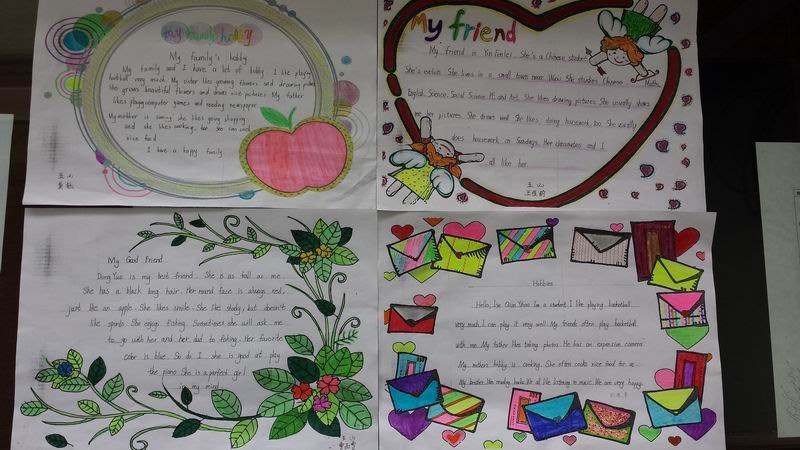 My family's hobby
My family's hobby
My family and I have a lot of hobby. I like playing
football very much. My sister likes growing flowers and drawing pictures.
She grows beautiful flowers and draws nice pictures. My father
likes playing computer games and reading newspaper.
My mother is cooking. She likes going shopping
and she likes cooking, too. She can cook
nice food.
I have a happy family.
My friend
My friend is Yin Fanlei. She's a Chinese student.
She's twelve. She lives in a small town near Wuxi. She studies Chinese, Math,
English, Science, Social Science, PE and Art. She likes drawing pictures. She usually shows
me her pictures. She draws well. She likes doing housework, too. She usually
does housework on Sundays. Her classmates and I
all like her.
玉山
My Good Friend
Dong Yue is my best friend. She is as tall as me.
She has a black long hair. Her round face is always red,
just like an apple. She likes smile. She likes study, but doesn't
like sports. She enjoys fishing. Sometimes she will ask me
to go with her and her dad to fishing. Her favorite
color is blue. So do I. she is good at play
the piano. She is a perfect girl
in my mind.
玉山
Hobbies
Hello, I'm Qian Shao. I'm a student. I like playing basketball
very much. I can play it very well. My friends often play basketball
with me. My father likes taking photos. He has an expensive camera.
My mother's hobby is cooking. She often cooks nice food for us.
My brother likes reading books. We all like listening to music. We are very happy.